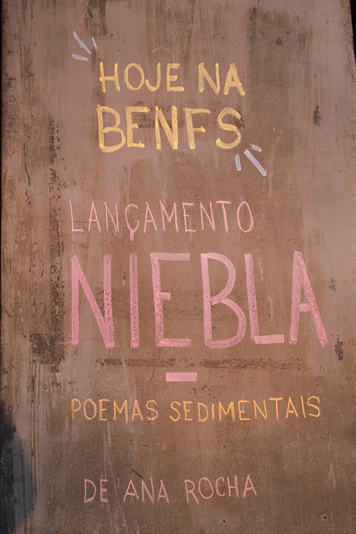 HOJE NA
BENFS
LANÇAMENTO
NIEBLA
–
POEMAS SEDIMENTAIS
DE ANA ROCHA